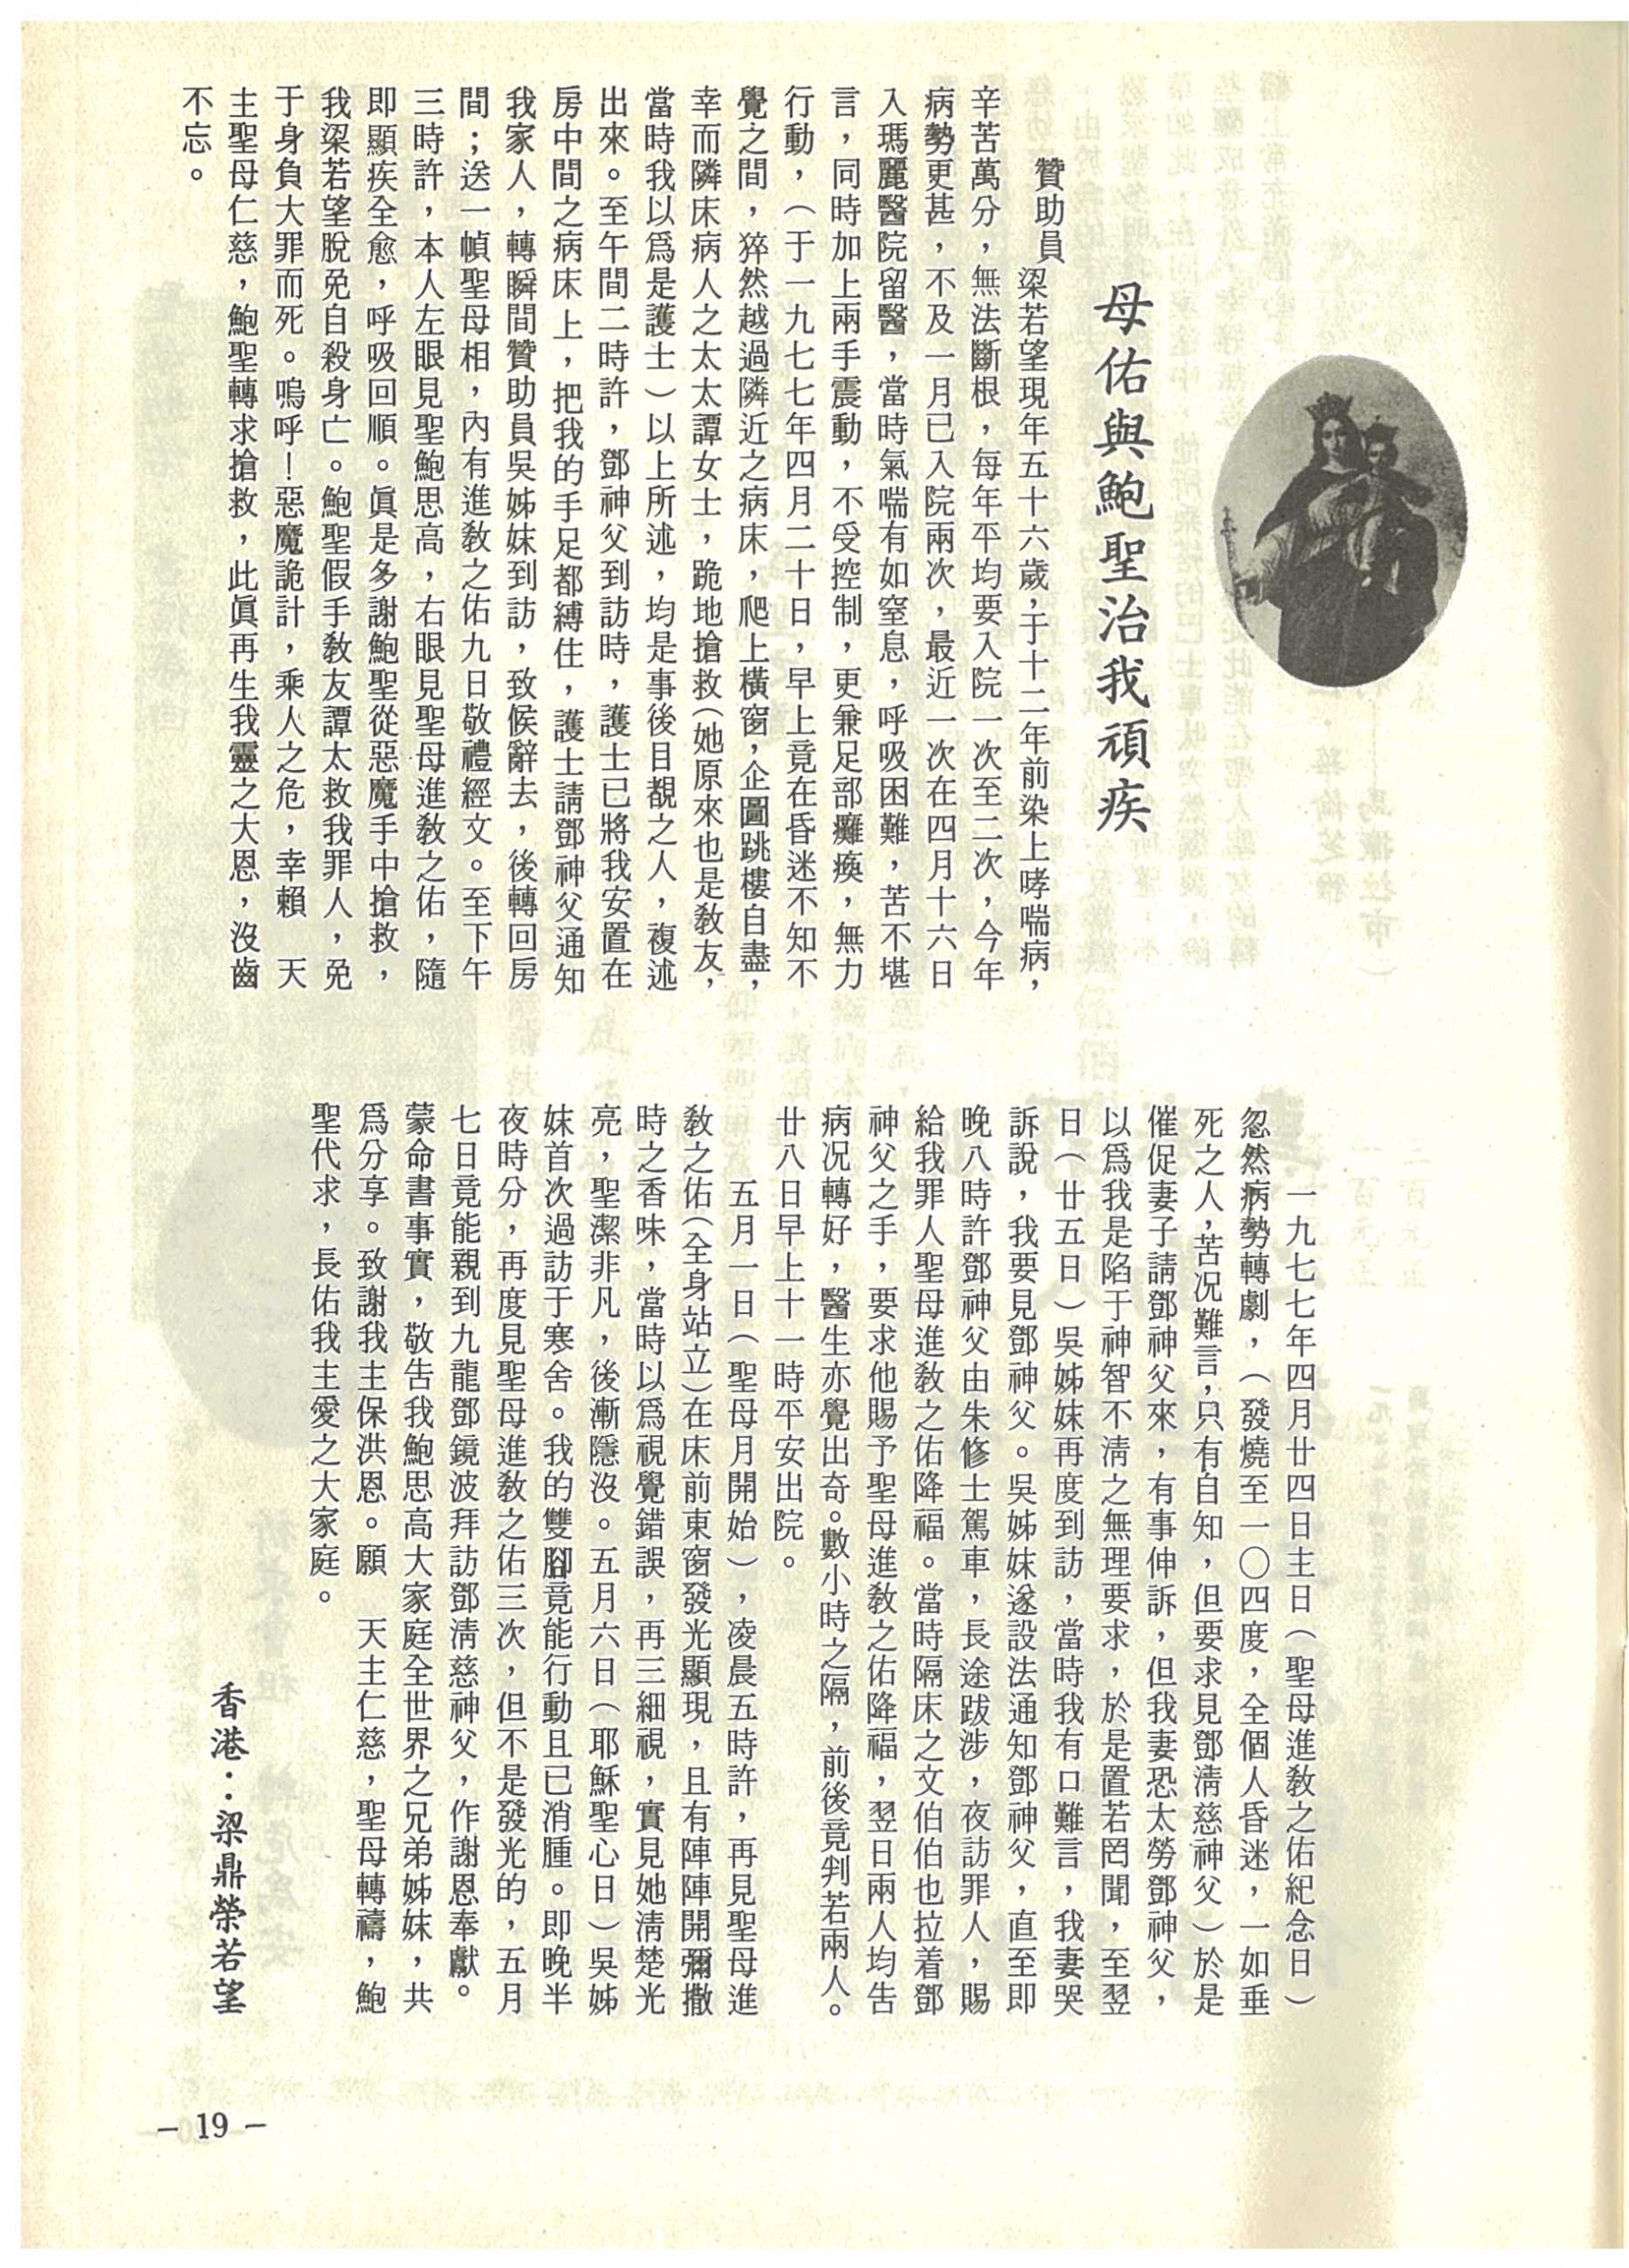 母佑與鮑聖治我頑疾
贊助員梁若望現年五十六歲，于十二年前染上哮喘病，
辛苦萬分，無法斷根，每年平均要入院一次至二次，今年
病勢更甚，不及一月已入院兩次，最近一次在四月十六日
入瑪麗醫院留醫，當時氣喘有如窒息，呼吸困難，苦不堪
言，同時加上兩手震動，不受控制，更兼足部癱瘓，無力
行動，（于一九七七年四月二十日，早上竟在昏迷不知不
覺之間，猝然越過隣近之病床，爬上橫窗，企圖跳樓自盡，
幸而隣床病人之太太譚女士，跪地搶救（她原來也是教友，
當時我以為是護士）以上所述，均是事後目覩之人，複述
出來。至午間二時許，鄧神父到訪時，護士已將我安置在
房中間之病床上，把我的手足都縛住，護士請鄧神父通知
我家人，轉瞬間贊助員吳姊妹到訪，致候辭去，後轉回房
間；送一幀聖母相，內有進教之佑九日敬禮經文。至下午
三時許，本人左眼見聖鮑思高，右眼見聖母進教之佑，隨
即顯疾全愈，呼吸回順。眞是多謝鮑聖從惡魔手中搶救，
我梁若望脫免自殺身亡。鮑聖假手教友譚太救我罪人，免
于身負大罪而死。嗚呼！惡魔詭計，乘人之危，幸賴　天
主聖母仁慈，鮑聖轉求搶救，此眞再生我靈之大恩，沒齒
不忘。
一九七七年四月廿四日主日（聖母進教之佑紀念日）
忽然病勢轉劇，（發燒至一〇四度，全個人昏迷，一如垂
死之人，苦况難言，只有自知，但要求見鄧淸慈神父）於是
催促妻子請鄧神父來，有事伸訴，但我妻恐太勞鄧神父，
以爲我是陷于神智不淸之無理要求，於是置若罔聞，至翌
日（廿五日）吳姊妹再度到訪，當時我有口難言，我妻哭
訴說，我要見鄧神父。吳姊妹遂設法通知鄧神父，直至即
晚八時許鄧神父由朱修士駕車，長途跋涉，夜訪罪人，賜
給我罪人聖母進教之佑降福。當時隔床之文伯伯也拉着鄧
神父之手，要求他賜予聖母進教之佑降福，翌日兩人均告
病况轉好，醫生亦覺出奇。數小時之隔，前後竟判若兩人。
廿八日早上十一時平安出院。
五月一日（聖母月開始），凌晨五時許，再見聖母進
教之佑（全身站立）在床前東窗發光顯現，且有陣陣開彌撒
時之香味，當時以爲視覺錯誤，再三細視，實見她淸楚光
亮，聖潔非凡，後漸隱沒。五月六日（耶穌聖心日）吳姊
妹首次過訪于寒舍。我的雙腳竟能行動且已消腫。即晚半
夜時分，再度見聖母進教之佑三次，但不是發光的，五月
七日竟能親到九龍鄧鏡波拜訪鄧淸慈神父，作謝恩奉獻。
蒙命書事實，敬告我鮑思高大家庭全世界之兄弟姊妹，共
爲分享。致謝我主保洪恩。願　天主仁慈，聖母轉禱，鮑
聖代求，長佑我主愛之大家庭。
香港：梁鼎榮若望
– 19 –